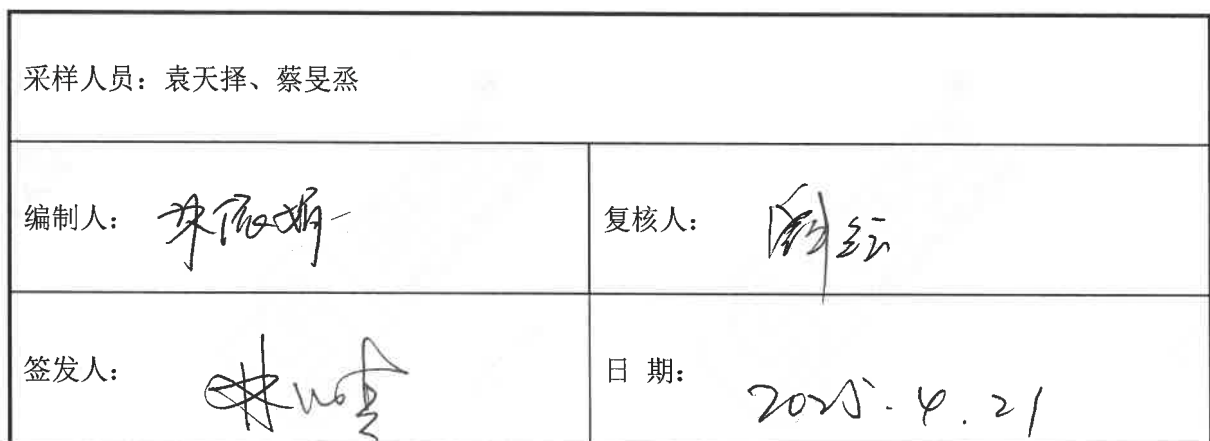 采样人员：袁天择、蔡旻烝
编制人：
复核人：
签发人：
日 期：2025.4.21